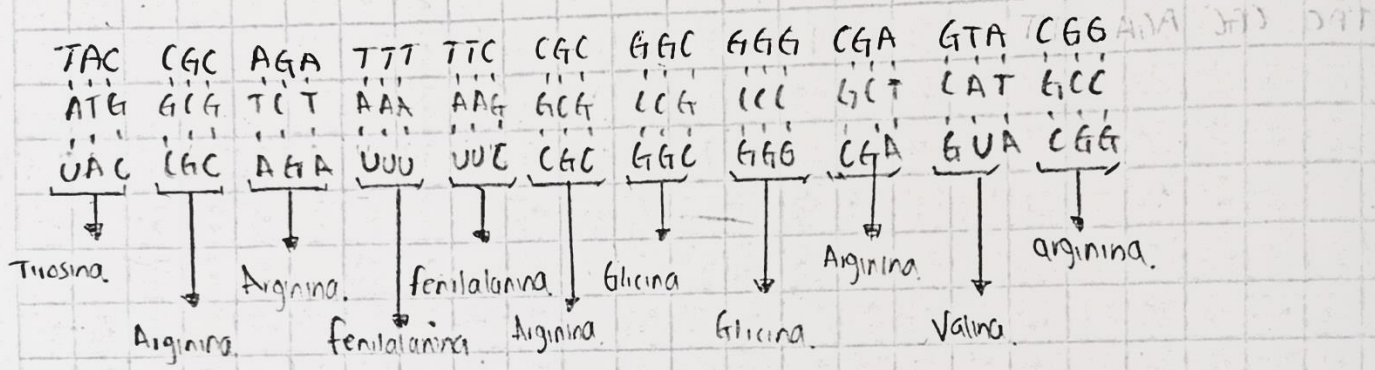 TAC CGC AGA TTT TTC CGC GGC GGG CGA GTA CGG
ATG GCG TCT AAA AAG GCG CCG CCC GCT CAT GCC
UAC CGC AGA UUU UUC CGC GGC GGG CGA GUA CGG
Tirosina. Arginina. fenilalanina Glicina Arginina. arginina.
Arginina. fenilalanina. Arginina. Glicina. Valina.